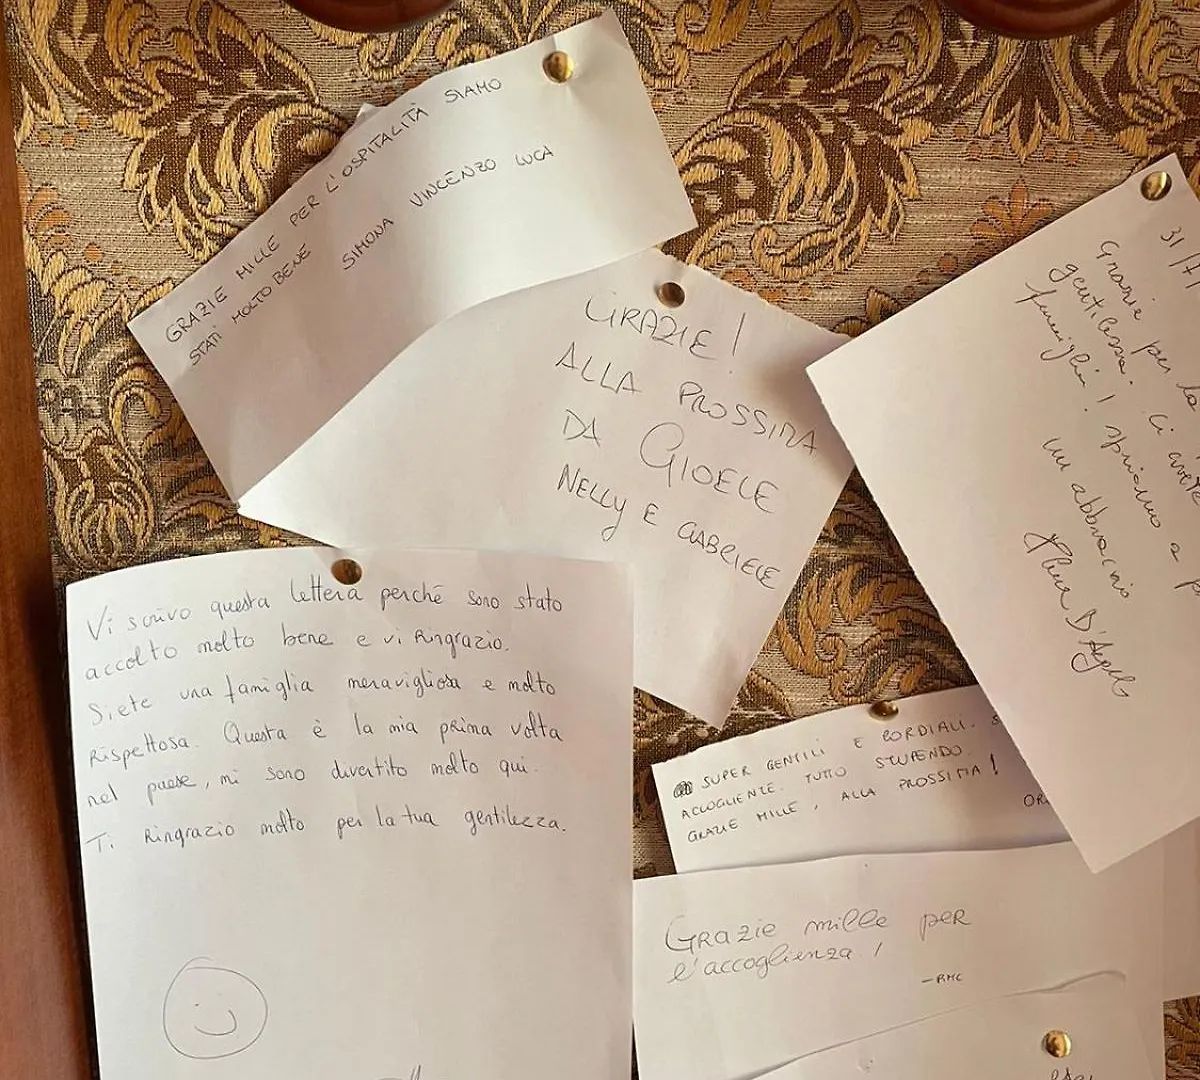 GRAZIE MILLE PER L'OSPITALITÀ SIAMO
STATI MOLTO BENE SIMONA VINCENZO LUCA
GRAZIE!
ALLA PROSSIMA
DA GIOELE
NELLY E GABRIELE
31/7
Grazie per la
gentilezza. Ci avete
famiglia! speriamo a
un abbraccio
Vi scrivo questa lettera perchè sono stato
accolto molto bene e vi Ringrazio.
Siete una famiglia meravigliosa e molto
Rispettosa. Questa è la mia prima volta
nel paese, mi sono divertito molto qui.
Ti Ringrazio molto per la tua gentilezza.
SUPER GENTILI E CORDIALI.
ACCOGLIENZE. TUTTO STUPENDO.
GRAZIE MILLE, ALLA PROSSIMA!
Grazie mille per
l'accoglienza!
-RMC